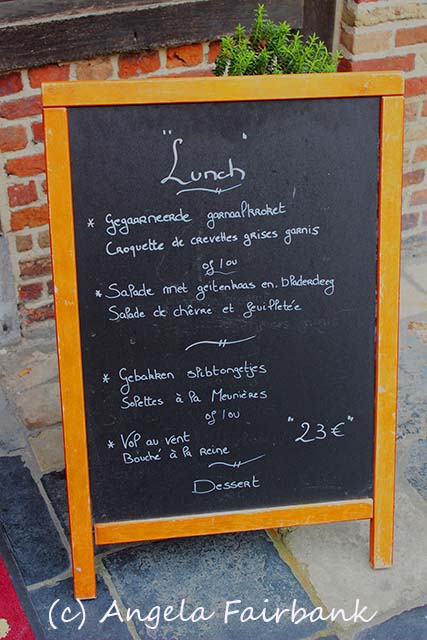 "Lunch"
* Gegaarneerde garnaalkroket
Croquette de crevettes grises garnis
of / ou
* Salade met geitenkaas en bladerdeeg
Salade de chêvre et feuilletée
* Gebakken slibtongetjes
Solettes à la Meunières
of / ou
* Vol au vent
Bouché à la reine
"23€"
Dessert
(c) Angela Fairbank